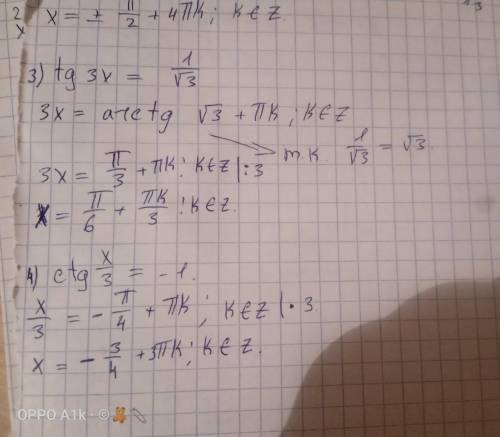 x = ± π/2 + 4πk; k∈Z.
3) tg 3x = 1/√3
3x = arctg √3 + πk; k∈Z
т.к. 1/√3 = √3
3x = π/3 + πk; k∈Z |:3
x = π/6 + πk/3; k∈Z.
4) ctg x/3 = -1.
x/3 = - π/4 + πk; k∈Z | · 3
x = - 3/4 + 3πk; k∈Z.
OPPO A1k · ©